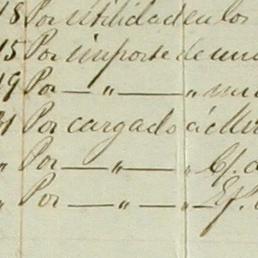 18 Por utilidad en los
15 Por importe de una
19 Por — " — "
21 Por cargado á
" Por — " — "
" Por — " — "